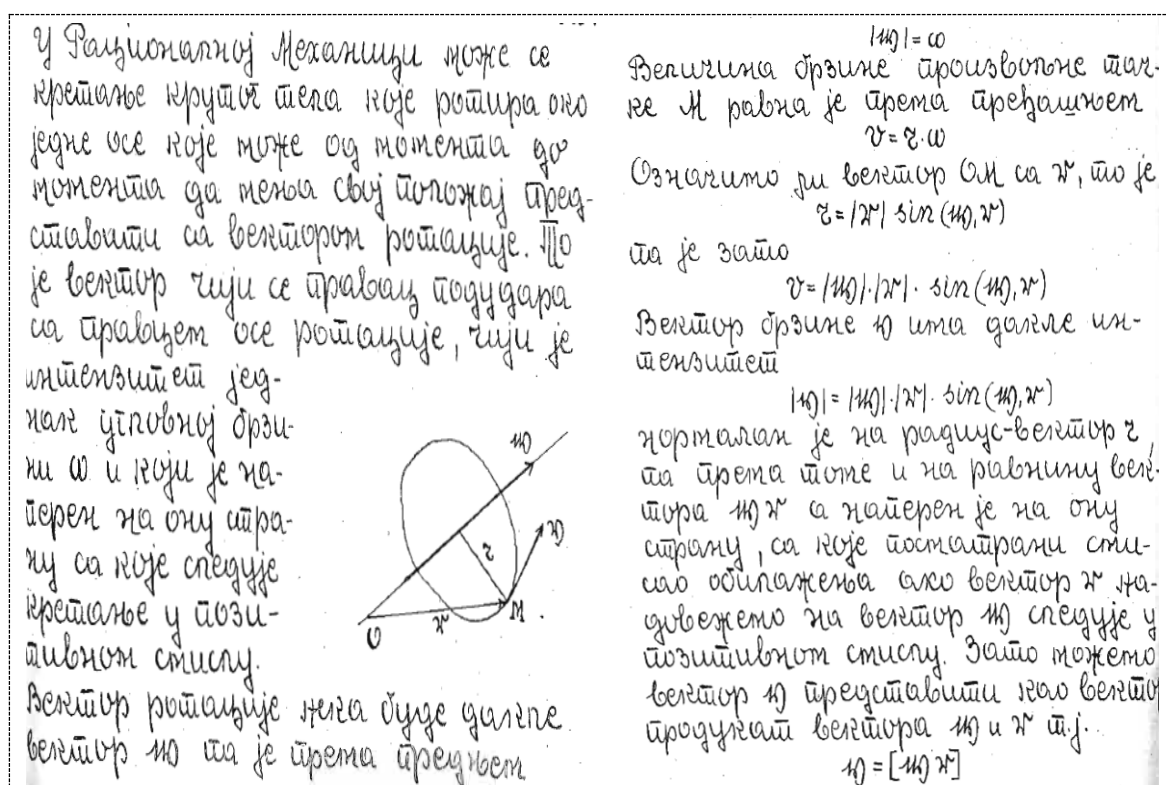 У Рационалној Механици може се
кретање крутог тела које ротира око
једне осе које може од момента до
момента да мења свој положај пред-
ставити са вектором ротације. То
је вектор чији се правац подудара
са правцем осе ротације, чији је
интензитет јед-
нак угловној брзи-
ни ω и који је на-
перен на ону стра-
ну са које следује
кретање у пози-
тивном смислу.
Вектор ротације нека буде дакле
вектор 𝔴 па је према предњем
𝔴
𝔳
r
O
𝔯
M
|𝔴| = ω
Величина брзине произвољне тач-
ке M равна је према пређашњем
v = r·ω
Означимо ли вектор OM са 𝔯, то је
r = |𝔯| sin(𝔴,𝔯)
па је зато
v = |𝔴|·|𝔯|· sin(𝔴,𝔯)
Вектор брзине 𝔳 има дакле ин-
тензитет
|𝔳| = |𝔴|·|𝔯|· sin(𝔴,𝔯)
нормалан је на радиус-вектор r,
па према томе и на равнину век-
тора 𝔴 𝔯 а наперен је на ону
страну, са које посматрани сми-
сао обилажења ако вектор 𝔯 на-
довежемо на вектор 𝔴 следује у
позитивном смислу. Зато можемо
вектор 𝔳 представити као векто
продукат вектора 𝔴 и 𝔯 т.ј.
𝔳 = [𝔴 𝔯]